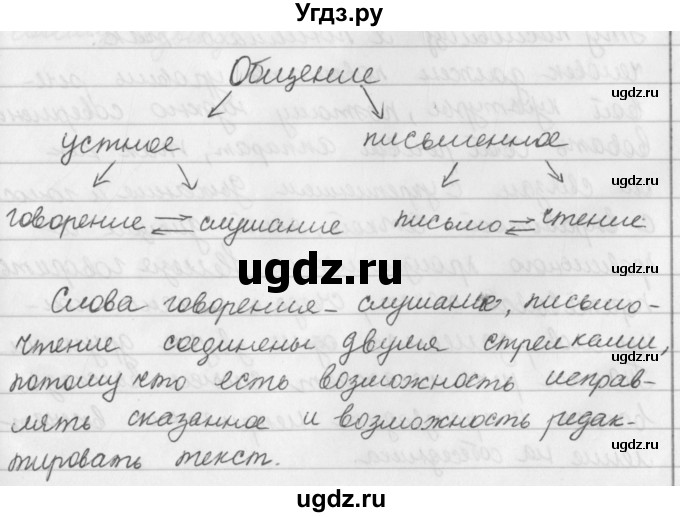 Угдз.ру
Общение
ugdz.ru
устное письменное
ugdz.ru
говорение ⇄ слушание письмо ⇄ чтение
ugdz.ru
ugdz.ru
Слова говорения - слушание, письмо-
чтение соединены двумя стрелками,
ugdz.ru
потому что есть возможность исправ-
лять сказанное и возможность редак-
ugdz.ru
тировать текст.
ugdz.ru